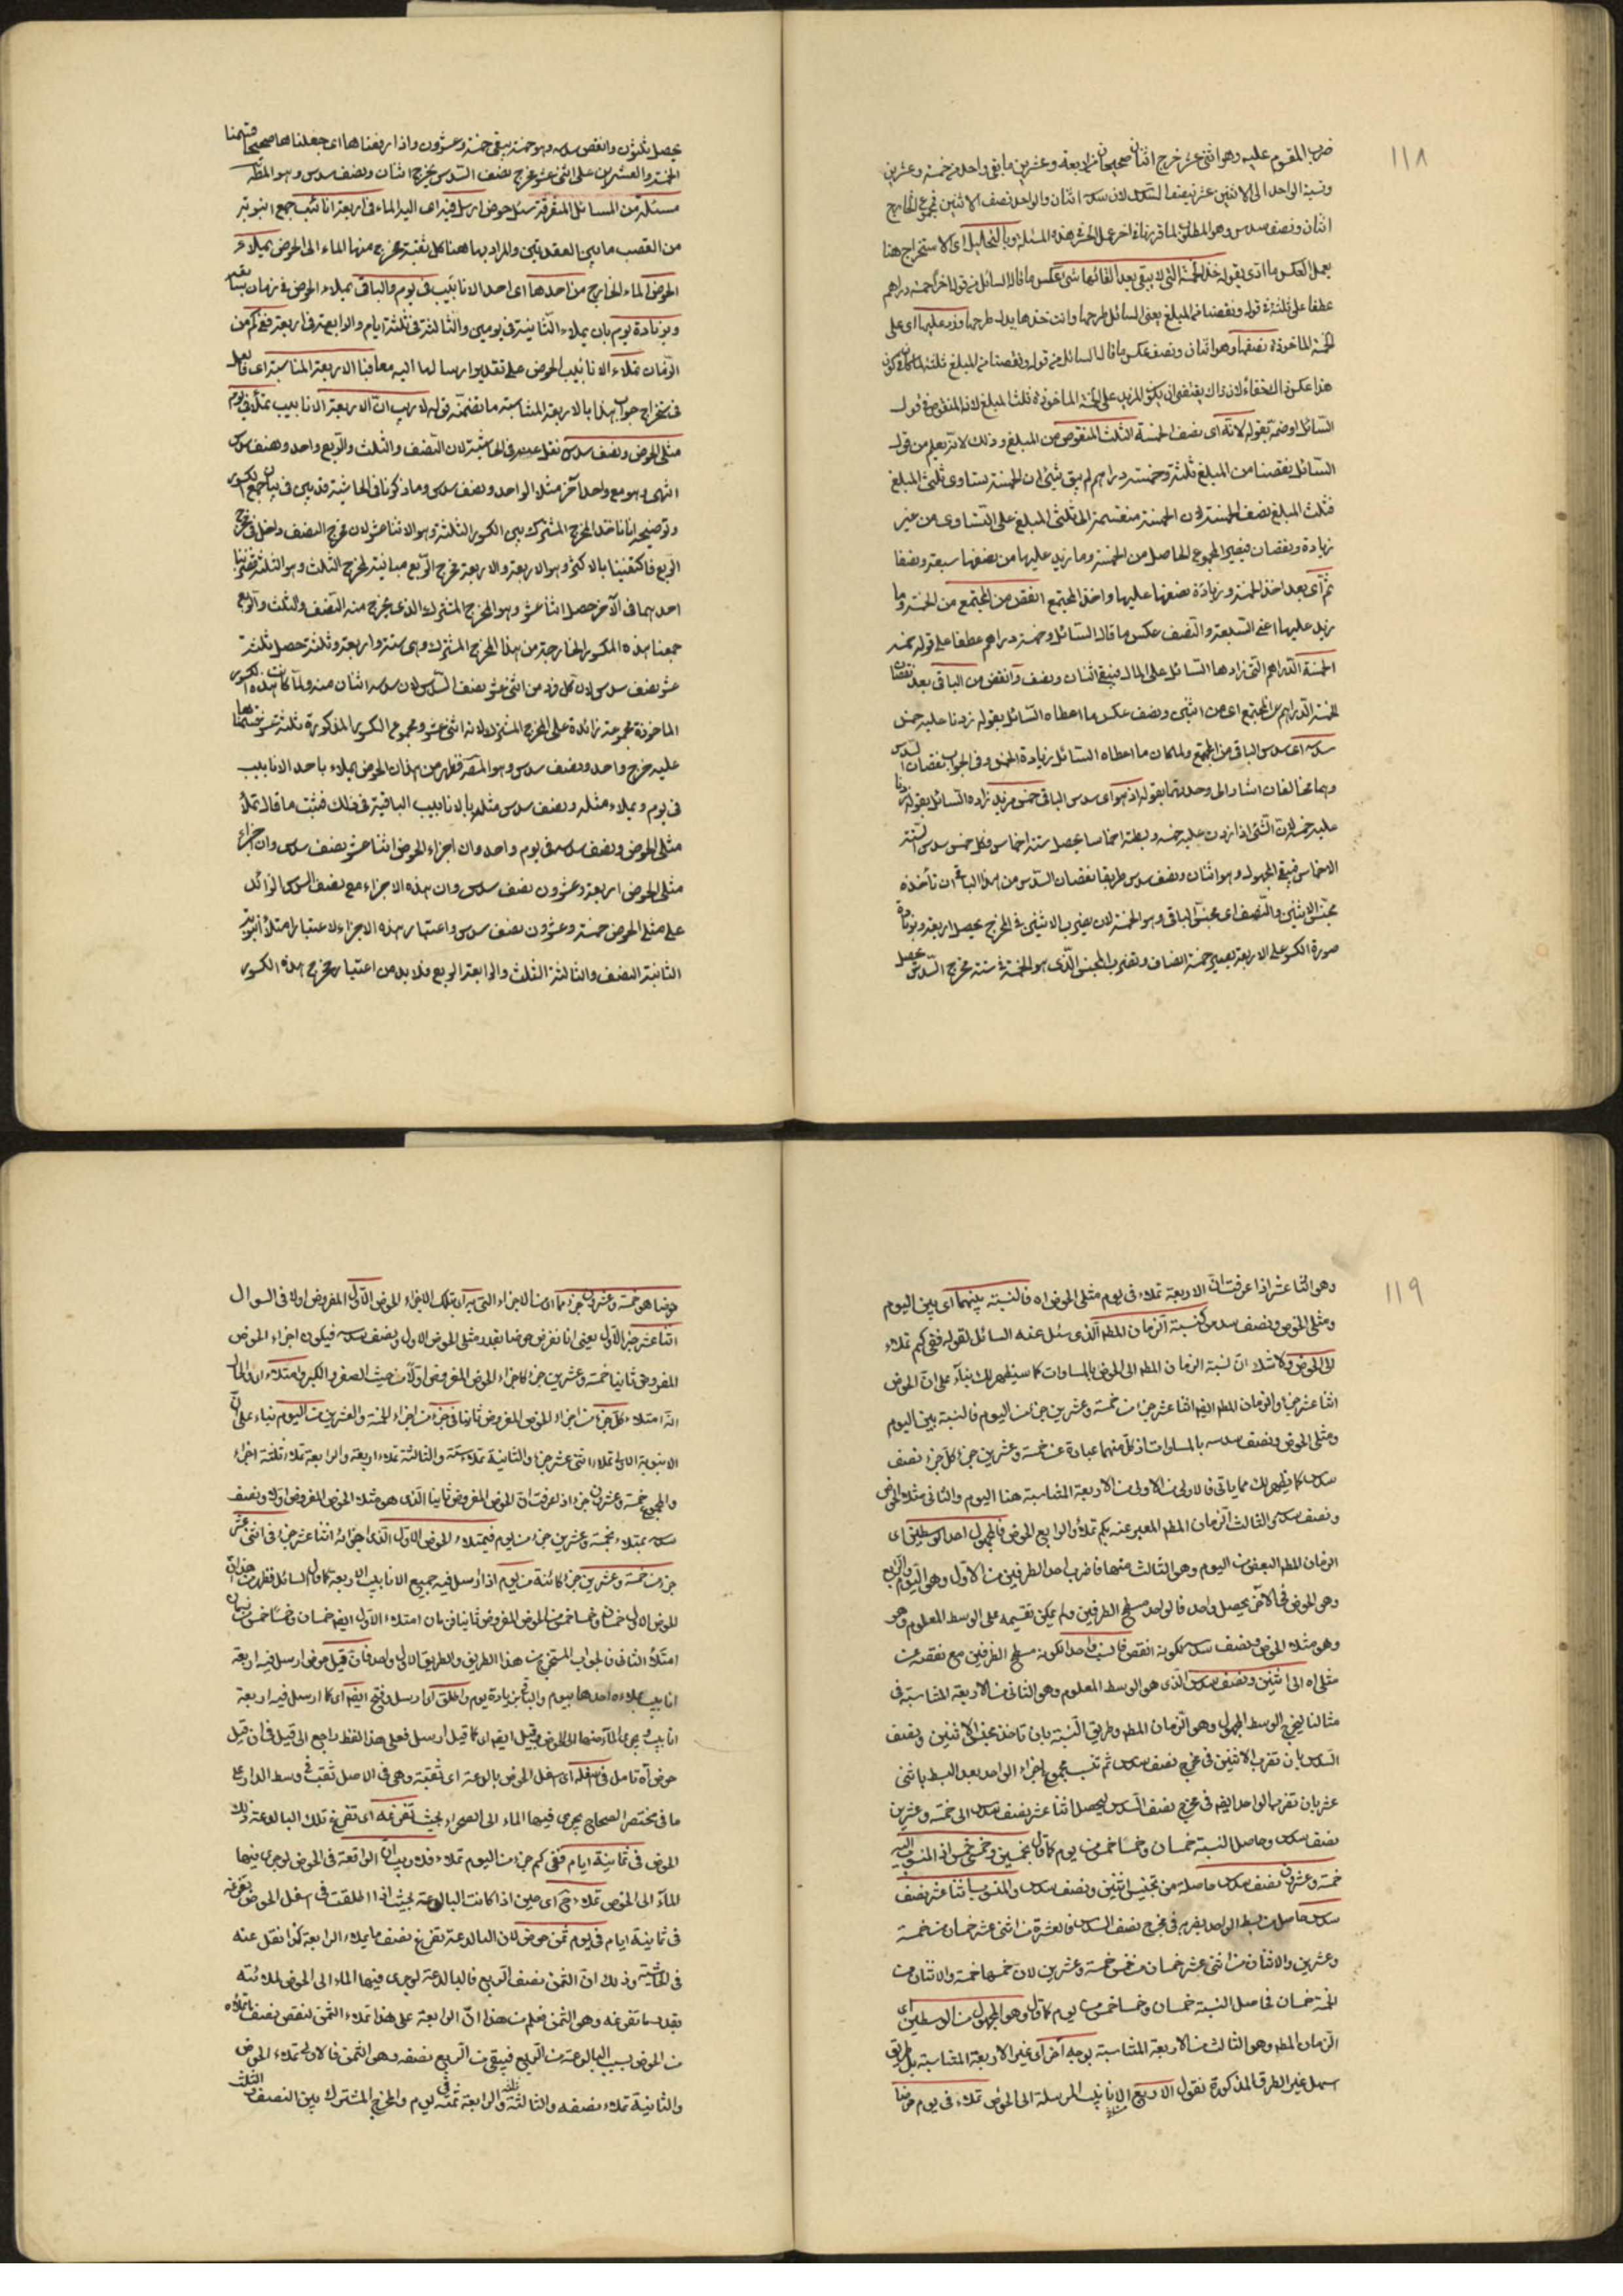 ١١٨
ضرب المقسوم عليه وهو اثنى عشر خرج اثنان صحيحان اربعة وعشرين مابقى واحد من خمسة وعشرين
ونسبة الواحد الى الاثنين عشر نصف السدس لان سدسه اثنان والواحد نصف الاثنين فمجموع الخارج
اثنان ونصف سدس وهو المطلوب
يعمل بالعكس
عطفا على ثلثة قوله ونقصنا من المبلغ يعنى السائل طرحها وانت خذها بدل طرحها وزد عليها اى على
الخمسة الماخوذة نصفها وهو اثنان ونصف عكس ما قال السائل من قوله ونقصنا من المبلغ ثلثه
السائل اوضحه بقوله لانه اى نصف الخمسة الثلث المنقوص من المبلغ وذلك لانه يعلم من قول
السائل نقصنا من المبلغ ثلثه وخمسة دراهم لم يبق شئ ان الخمسة تساوى ثلثى المبلغ
فثلث المبلغ نصف الخمسة لان الخمسة منقسمة الى ثلثى المبلغ على التساوى من غير
زيادة ونقصان فيصير المجموع الحاصل من الخمسة وما زيد عليها من نصفها سبعة ونصفا
ثم اى بعد اخذ الخمسة وزيادة نصفها عليها واخذ المجتمع انقص من المجتمع من الخمسة وما
زيد عليها اعنى السبعة والنصف عكس ما قال السائل وخمسة دراهم عطفا على قوله خمسه
الخمسة الدراهم التى زادها السائل على المال فيبقى اثنان ونصف وانقص من الباقى بعد نقصان
الخمسة الدراهم من المجتمع اى من اثنين ونصف عكس ما اعطاه السائل بقوله زدنا عليه خمس
سدسه اى سدس الباقى من المجتمع ولما كان ما اعطاه السائل زيادة الخمس وفى الجواب نقصان السدس
وهما مخالفان اشار الى وحدتهما بقوله اذ هو اى سدس الباقى خمس مزيد زاده السائل بقوله زدنا
عليه خمسه لان الشئ اذا زدت عليه خمسه وبسطته اخماسا يحصل ستة اخماس فكل خمس سدس الستة
الاخماس فيبقى المجهول وهو اثنان ونصف سدس طريقا نقصان السدس من هذا الباقى ان تأخذه
مجنس الاثنين والنصف اى مجنس الباقى وهو الخمسة لان بضرب الاثنين فى المخرج يحصل اربعة وبزيادة
صورة الكسر على الاربعة يصير خمسة انصاف وتضرب المجنس الذى هو الخمسة فى ستة مخرج السدس يحصل
يحصل ثلثون وانقص سدسه وهو خمسة يبقى خمسة وعشرون واذا رفعناها اى جعلناها صحيحا قسمنا
الخمسة والعشرين على اثنى عشر مخرج نصف السدس يخرج اثنان ونصف سدس وهو المط
مسئلة من المسائل المتفرقة سئل حوض ارسل فيه اى اليه الماء فى اربعة انابيب جمع انبوبة
من القصب ما بين العقدتين والمراد بها ههنا كل ثقبة يخرج منها الماء الى الحوض يملاء
الحوض الماء الخارج من احدها اى احد الانابيب فى يوم والباقى يملاء الحوض فى زمان
وبزيادة يوم بان يملاء الثانية فى يومين والثالثة فى ثلثة ايام والرابعة فى اربعة ففى كم من
الزمان تملاء الانابيب الحوض على تقدير ارسالها اليه معا فبالاربعة المتناسبة
فى استخراج جواب هذا بالاربعة المتناسبة ما تضمنه قوله لاريب ان الاربعة الانابيب تملاء فى يوم
مثلى الحوض ونصف سدس نقل عنه فى الحاشية لان النصف والثلث والربع واحد ونصف سدس
انتهى وهو مع واحد آخر مثلا الواحد ونصف سدس وما ذكرنا فى الحاشية قد بين فى بيان جمع الكسور
وتوضيحه انا ناخذ المخرج المشترك بين الكسور الثلثة وهو الاثنا عشر لان مخرج النصف داخل فى مخرج
الربع فاكتفينا بالاكثر وهو الاربعة والاربعة مخرج الربع مباينة لمخرج الثلث وهو الثلثة فضربنا
احدهما فى الآخر حصل اثنا عشر وهو المخرج المشترك الذى يخرج منه النصف والثلث والربع
جمعنا هذه الكسور الخارجة من هذا المخرج المشترك وهى ستة واربعة وثلثة حصل ثلثة
عشر نصف سدس لان كل فرد من اثنى عشر نصف السدس لان سدسه اثنان منه ولما كانت هذه الكسور
الماخوذة مجموعة زائدة على المخرج المشترك لانه اثنى عشر ومجموع الكسور المذكورة ثلثة عشر قسمناها
عليه خرج واحد ونصف سدس وهو المط فظهر من هذا ان الحوض يملاء باحد الانابيب
فى يوم ويملاء مثله ونصف سدس مثله بالانابيب الباقية فى ذلك فثبت ما قاله تملأ
مثلى الحوض ونصف سدسه فى يوم واحد وان اجزاء الحوض اثنا عشر نصف سدس وان اجزاء
مثلى الحوض اربعة وعشرون نصف سدس وان هذه الاجزاء مع نصف السدس الزائد
على مثلى الحوض خمسة وعشرون نصف سدس واعتبار هذه الاجزاء لاعتبار امتلأ انبوبة
الثانية النصف والثالثة الثلث والرابعة الربع فلابد من اعتبار مخرج هذه الكسور
١١٩
وهو اثنا عشر اذا عرفت ان الاربعة تملاء فى يوم مثلى الحوض اه فالنسبة بينهما اى بين اليوم
ومثلى الحوض ونصف سدس كنسبة الزمان المط الذى سئل عنه السائل لقوله ففى كم تملاء
الى الحوض ولا شك ان نسبة الزمان المط الى الحوض بالمساوات كما سيظهر لك بناء على ان الحوض
اثنا عشر جزأ والزمان المط ايضا اثنا عشر جزأ من خمسة وعشرين جزأ من اليوم فالنسبة بين اليوم
ومثلى الحوض ونصف سدسه بالمساوات اذ كل منهما عبارة عن خمسة وعشرين جزأ كل جزء نصف
سدس كما يظهر لك مما ياتى فالاولى من الاربعة المتناسبة هنا اليوم والثانى مثلا الحوض
ونصف سدس والثالث الزمان المط المعبر عنه بكم تملاء والرابع الحوض فالمجهول احد الوسطين اى
الزمان المط البعض من اليوم وهو الثالث منها فاضرب احد الطرفين من الاول وهو اليوم والرابع
وهى الحوض فى الآخر يحصل واحد فالواحد مسطح الطرفين ولم يمكن تقسيمه على الوسط المعلوم وهو
وهو مثلا الحوض ونصف سدس لكونه انقص فانسب واحدا لكونه مسطح الطرفين مع نقصه عن
مثلى اه الى اثنين ونصف سدس الذى هو الوسط المعلوم وهو الثانى من الاربعة المتناسبة فى
مثالنا ليخرج الوسط المجهول وهو الزمان المط وطريق النسبة بان تاخذ مجنس الاثنين ونصف
السدس بان تضرب الاثنين فى مخرج نصف سدس ثم تنسب مجموع اجزاء الواحد بعد البسط باثنى
عشر بان تضرب الواحد ايضا فى مخرج نصف السدس ليحصل اثنا عشر نصف سدس الى خمسة وعشرين
نصف سدس وحاصل النسبة خمسان وخمسا خمس من يوم كما قال بخمسين وخمسى خمس اذ المنسوب اليه
خمسة وعشرون نصف سدس حاصلة من تجنيس اثنين ونصف سدس والمنسوب اثنا عشر نصف
سدس حاصل من بسط الواحد بضربه فى مخرج نصف السدس فالعشرة من اثنى عشر خمسان من خمسة
وعشرين والاثنان من اثنى عشر خمسان من خمس خمسة وعشرين لان خمسها خمسة والاثنان من
الخمسة خمسان فحاصل النسبة خمسان وخمسا خمس من يوم كما قال وهو المجهول من الوسطين اى
الزمان المط وهو الثالث من الاربعة المتناسبة بوجه آخر اى غير الاربعة المتناسبة بل بطريق
اسهل غير الطرق المذكورة نقول الاربع الانابيب المرسلة الى الحوض تملاء فى يوم حوضا
حوضا هو خمسة وعشرون جزأ مما اى من الاجزاء التى به اى بتلك الاجزاء الحوض الاول المفروض اولا فى السوال
اثنا عشر جزأ الاول يعنى انا نفرض حوضا بقدر مثلى الحوض الاول ونصف سدسه فيكون اجزاء الحوض
المفروض ثانيا خمسة وعشرين جزأ كاجزاء الحوض المفروض اولا من حيث الصغر والكبر وامتلاء
انه امتلاء كل جزء من اجزاء الحوض المفروض ثانيا فى جزء من اجزاء الخمسة والعشرين من اليوم بناء على ان
الانبوبة الاولى تملاء اثنى عشر جزأ والثانية تملاء ستة والثالثة تملاء اربعة والرابعة تملاء ثلثة اجزاء
والمجموع خمسة وعشرون جزأ اذ لعرفت ان الحوض المفروض ثانيا الذى هو مثلا الحوض المفروض اولا ونصف
سدسه يمتلاء بخمسة وعشرين جزء من يوم فيمتلاء الحوض الاول الذى اجزائه اثنا عشر جزأ فى اثنى عشر
جزء من خمسة وعشرين جزأ كائنة من يوم اذا ارسل فيه جميع الانابيب الاربعة كما قال السائل فظهر من هذا ان
للحوض الاول خمسان وخمسا خمس من الحوض المفروض ثانيا فزمان امتلاء الاول ايضا خمسان وخمسا خمس من زمان
امتلأ الثانى فالجواب المستخرج من هذا الطريق والطريق الاول واحد فان قيل حوض ارسل فيه اربعة
انابيب يملاءه احدها بيوم والباقى بزيادة يوم واطلق اى ارسل وفتح ايضا اى كما ارسل فيه اربعة
انابيب ويجرى الماء منها الى الحوض وقيل ايضا اى كما قيل ارسل فعلى هذا اللفظ راجع الى قيل فى ان قيل
حوض آه تامل فى اسفله اى اسفل الحوض بالوعة اى ثقبة وهى فى الاصل ثقب فى وسط الدار على
ما فى مختصر الصحاح يجرى فيها الماء الى الصحراء بحيث تفرغه اى تفرغ تلك البالوعة ذلك
الحوض فى ثمانية ايام ففى كم جزء من اليوم تملاء فلاريب ان الرابعة فى الحوض لو جرى فيها
الماء الى الحوض تملاء ح اى حين اذا كانت البالوعة بحيث اذا اطلقت فى اسفل الحوض تفرغه
فى ثمانية ايام فى يوم ثمن حوض لان البالوعة تفرغ نصف ما يملاء الرابعة كذا نقل عنه
فى الحاشية وذلك ان الثمن نصف الربع فالبالوعة لو جرى فيها الماء الى الحوض لملائته
بقدر ما تفرغه وهى الثمن فعلم من هذا ان الرابعة على هذا تملاء الثمن لنقص نصف ما تملاءه
من الحوض بسبب البالوعة من الربع فيبقى من الربع نصفه وهى الثمن فالاولى تملاء الحوض
والثانية تملاء نصفه والثالثة ثلثه والرابعة ثمنه فى يوم والمخرج المشترك بين النصف والثلث